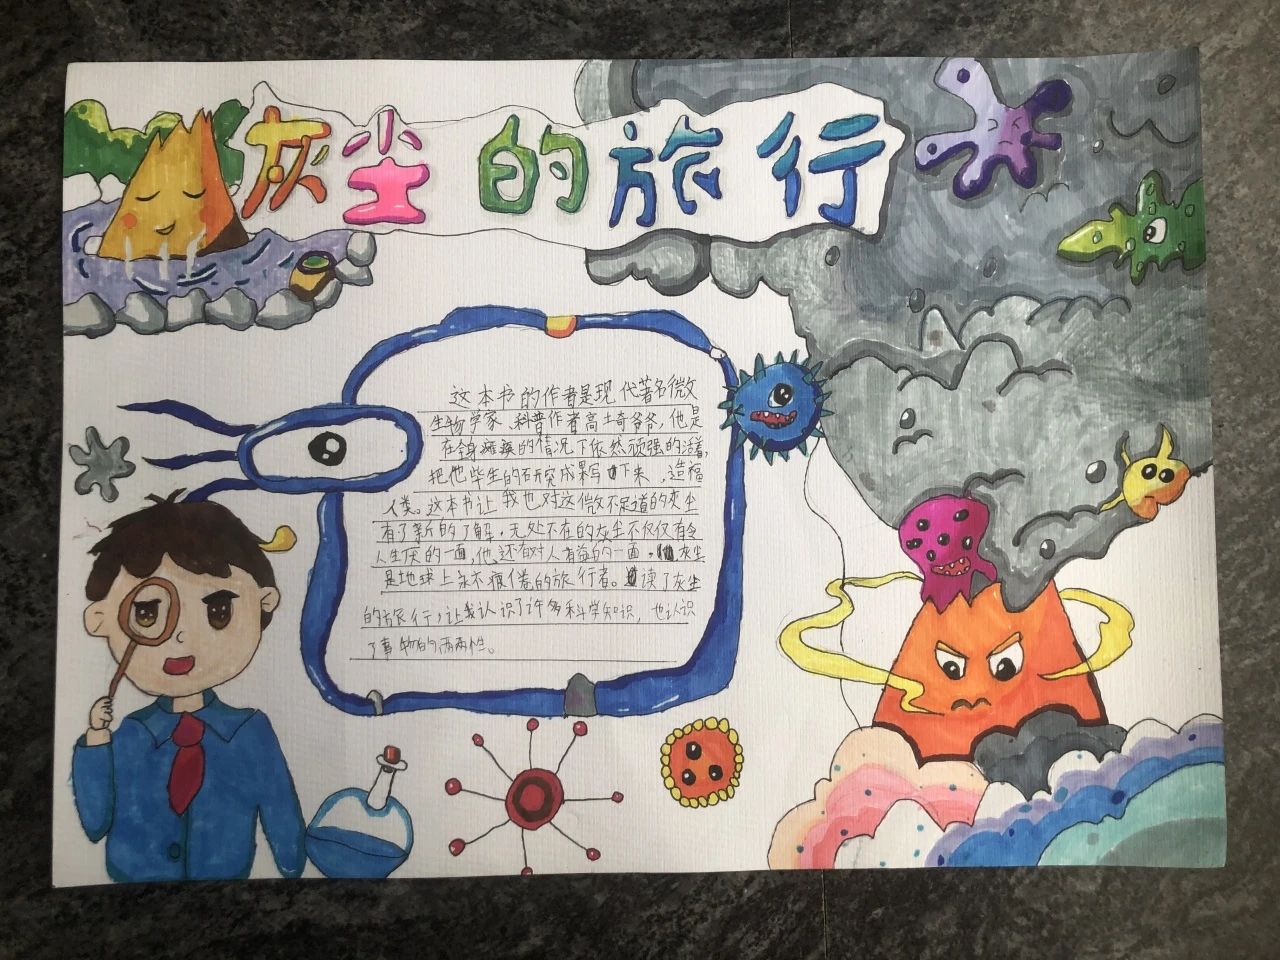 灰尘的旅行
这本书的作者是现代著名微
生物学家、科普作者高士奇爷爷，他是
在全身瘫痪的情况下依然顽强的活着，
把他毕生的研究成果写下来，造福
人类。这本书让我也对这微不足道的灰尘
有了新的了解，无处不在的灰尘不仅仅有令
人生厌的一面，他还有对人有益的一面，灰尘
是地球上永不疲倦的旅行者。读了灰尘
的旅行，让我认识了许多科学知识，也认识
了事物的两面性。